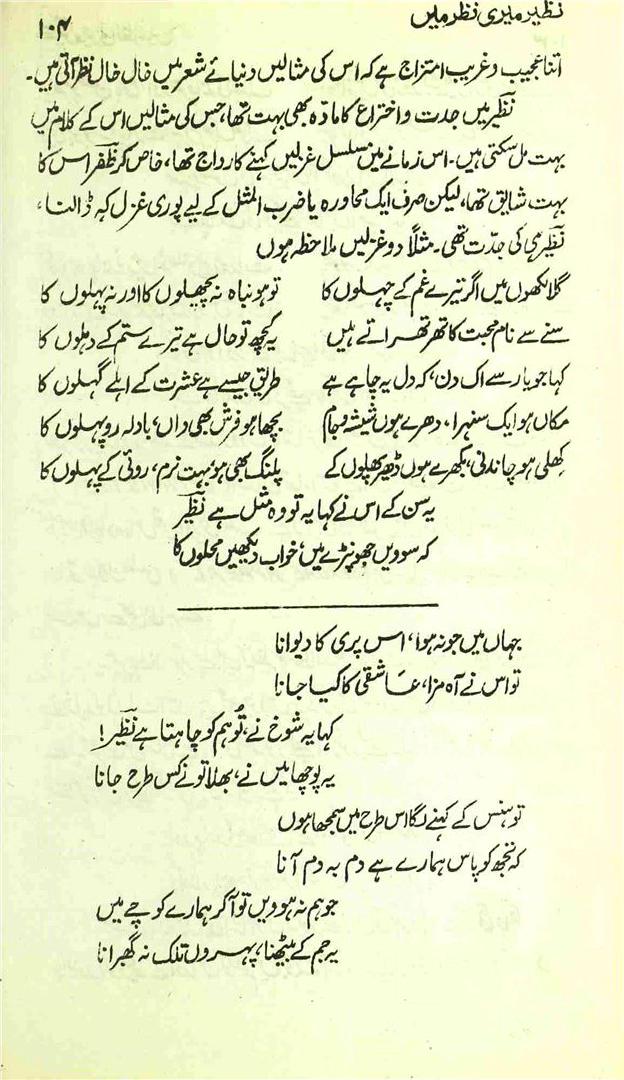 نظیر میری نظر میں ۱۰۴
اتنا عجیب و غریب امتزاج ہے کہ اس کی مثالیں دنیائے شعر میں خال خال نظر آتی ہیں۔
نظیرؔ میں جدت و اختراع کا مادہ بھی بہت تھا، جس کی مثالیں اس کے کلام میں
بہت مل سکتی ہیں۔ اس زمانے میں مسلسل غزلیں کہنے کا رواج تھا، خاص کر ظفرؔ اس کا
بہت شایق تھا، لیکن صرف ایک محاورہ یا ضرب المثل کے لیے پوری غزل کہہ ڈالنا،
نظیرؔ ہی کی جدّت تھی۔ مثلاً دو غزلیں ملاحظہ ہوں
گلا لکھوں میں اگر تیرے غم کے چہلوں کا تو ہو نباہ نہ پچھیلوں کا اور نہ پہلوں کا
سنے سے نام محبت کا تھر تھراتے ہیں یہ کچھ تو حال ہے تیرے ستم کے دہلوں کا
کہا جو یار سے اک دن، کہ دل یہ چاہے ہے طریق جیسے ہے عشرت کے اہلے گہلوں کا
مکاں ہو ایک سنہرا، دھرے ہوں شیشہ و جام بچھا ہو فرش بھی واں، بادلہ روپہلوں کا
کھلی ہو چاندنی، بکھرے ہوں ڈھیر پھولوں کے پلنگ بھی ہو بہت نرم، روئی کے پہلوں کا
یہ سن کے اس نے کہا یہ تو وہ مثل ہے نظیرؔ
کہ سوویں جھونپڑے میں، خواب دیکھیں محلوں کا
جہاں میں جو نہ ہوا، اس پری کا دیوانا
تو اس نے آہ مزا، عاشقی کا کیا جانا
کہا یہ شوخ نے، تُو ہم کو چاہتا ہے نظیرؔ!
یہ پوچھا میں نے، بھلا تو نے کس طرح جانا
تو ہنس کے کہنے لگا اس طرح میں سمجھا ہوں
کہ تجھ کو پاس ہمارے ہے دم بہ دم آنا
جو ہم نہ ہوویں تو آکر ہمارے کوچے میں
یہ جم کے بیٹھنا، پہروں تلک نہ گھبرانا